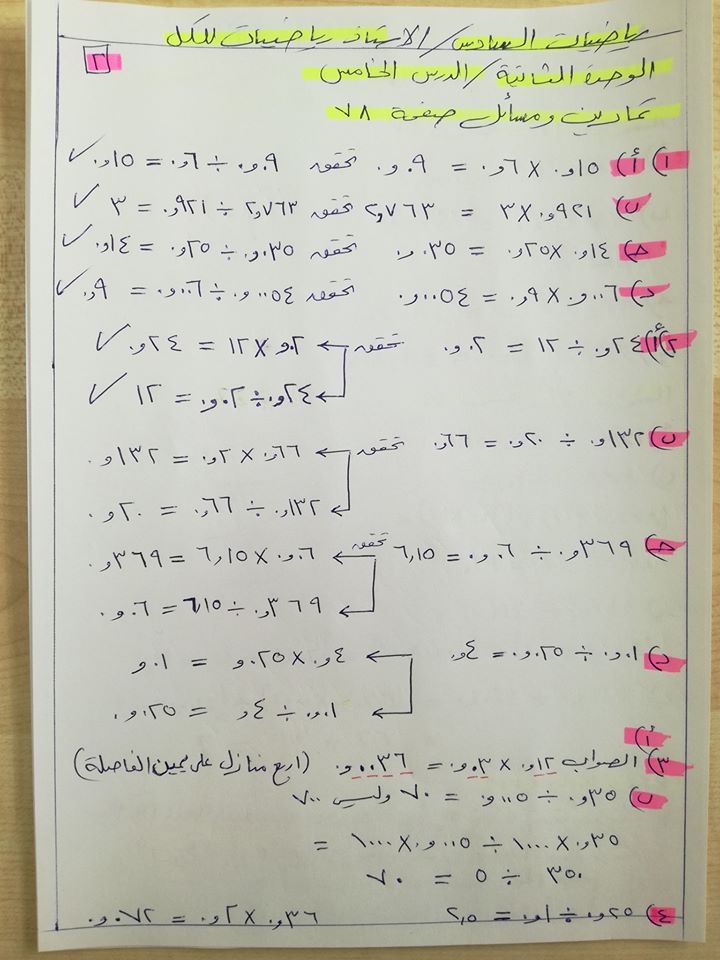 رياضيات السادس/الاستاذ رياضيات للكل
٢
الوحدة الثانية/الدرس الخامس
تمارين ومسائل صفحة ٧٨
١) أ) ١٥و٠ × ٦و٠ = ٠٩و٠ تحقق ٠٩و٠ ÷ ٦و٠ = ١٥و٠ ✓
ب) ٩٢١و٠ × ٣ = ٢,٧٦٣ تحقق ٢,٧٦٣ ÷ ٩٢١و٠ = ٣ ✓
ج) ١٤و٠ × ٢٥و٠ = ٠٣٥و٠ تحقق ٠٣٥و٠ ÷ ٢٥و٠ = ١٤و٠ ✓
د) ٠٠٦و٠ × ٩و٠ = ٠٠٥٤و٠ تحقق ٠٠٥٤و٠ ÷ ٠٠٦و٠ = ٩و٠ ✓
٢) أ) ٢٤و٠ ÷ ١٢ = ٠٢و٠ تحقق ٠٢و٠ × ١٢ = ٢٤و٠ ✓
٢٤و٠ ÷ ٠٢و٠ = ١٢ ✓
ب) ١٣٢و٠ ÷ ٢٠و٠ = ٦٦و٠ تحقق ٦٦و٠ × ٢و٠ = ١٣٢و٠
١٣٢و٠ ÷ ٦٦و٠ = ٢٠و٠
ج) ٣٦٩و٠ ÷ ٠٦و٠ = ٦,١٥ تحقق ٠٦و٠ × ٦,١٥ = ٣٦٩و٠
٣٦٩و٠ ÷ ٦,١٥ = ٠٦و٠
د) ٠١و٠ ÷ ٠٢٥و٠ = ٤و٠ ٤و٠ × ٠٢٥و٠ = ٠١و٠
٠١و٠ ÷ ٤و٠ = ٠٢٥و٠
أ)
٣) الصواب ١٢و٠ × ٠٣و٠ = ٠٠٣٦و٠ (اربع منازل على يمين الفاصلة)
ب) ٣٥و٠ ÷ ٠٠٥و٠ = ٧٠ وليس ٧٠٠
٣٥و٠ × ١٠٠٠ ÷ ٠٠٥و٠ × ١٠٠٠ =
٣٥٠ ÷ ٥ = ٧٠
٤) ٢٥و٠ ÷ ١و٠ = ٢,٥ ٣٦و٠ × ٢و٠ = ٠٧٢و٠